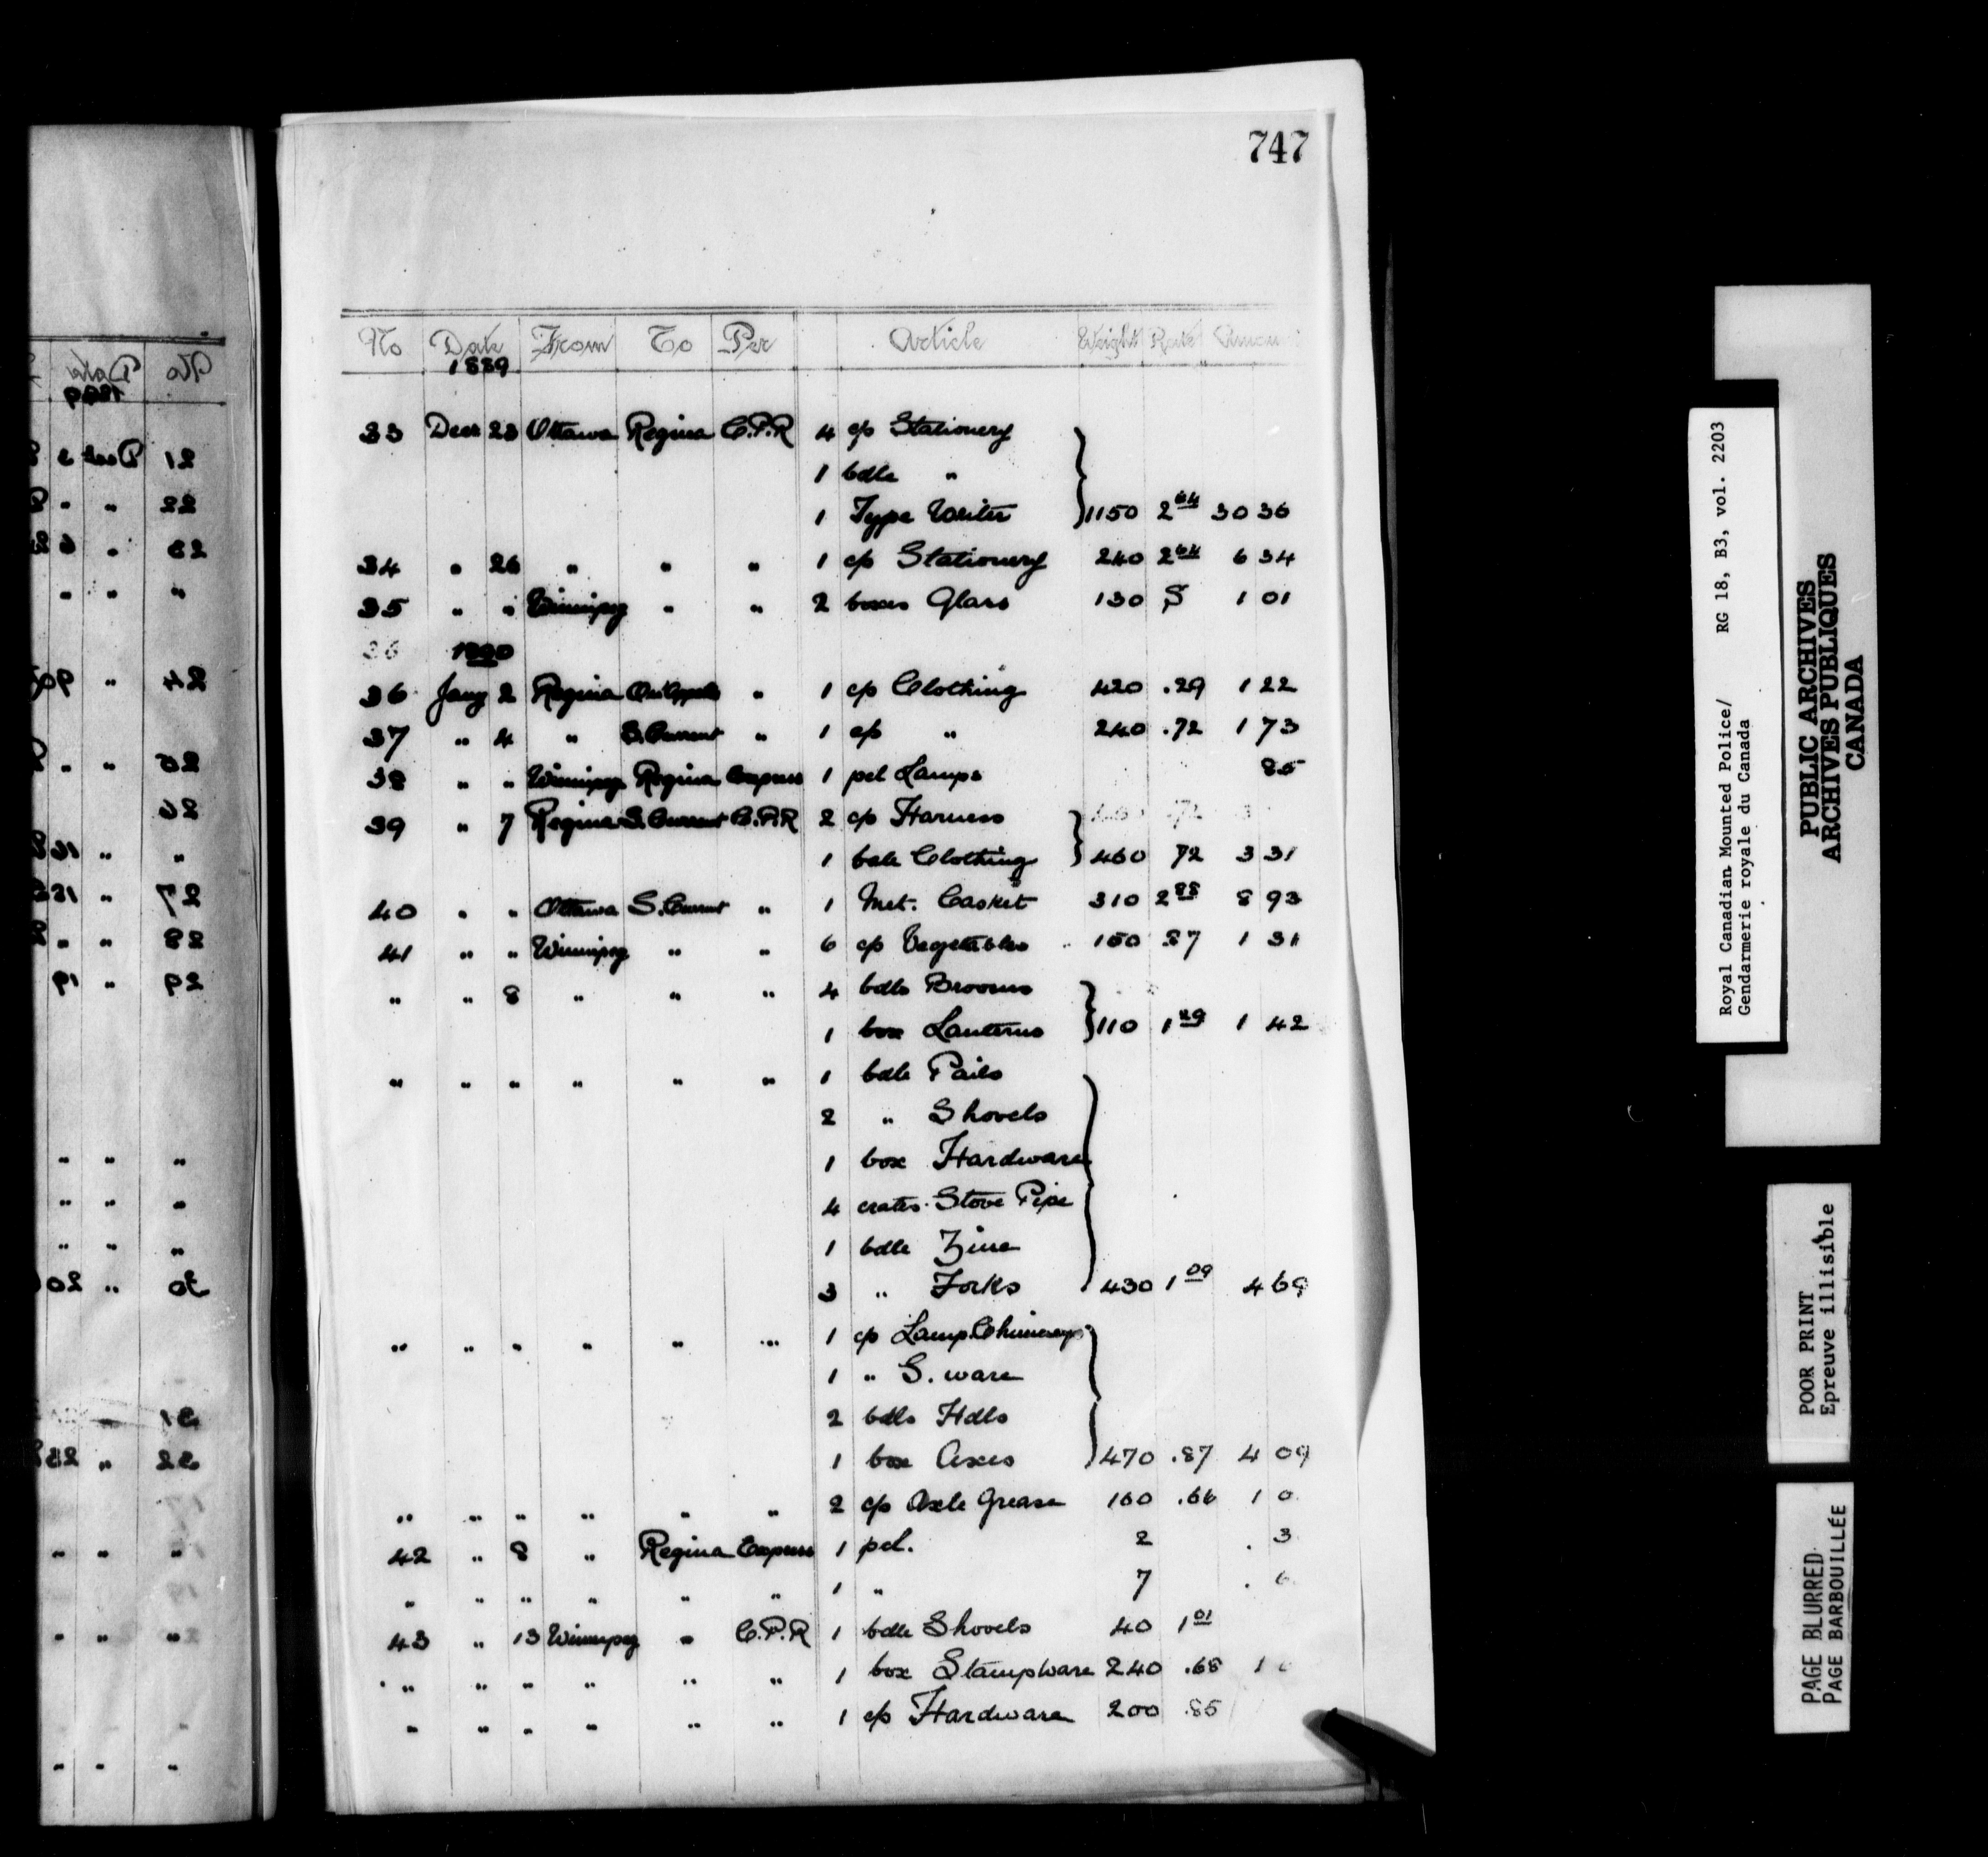 747
No Date From To Per Article Weight Rate Amoun
1889
33 Decr 23 Ottawa Regina C.P.R 4 c/s Stationery
1 bdle "
1 Type Writer 1150 2 64 30 36
34 " 26 " " " 1 c/s Stationery 240 2 64 6 34
35 " " Winnipeg " " 2 boxes Glass 130 S 1 01
36 1890
36 Jany 2 Regina Qu'Appelle " 1 c/s Clothing 420 .29 1 22
37 " 4 " S. Current " 1 c/s " 240 .72 1 73
38 " " Winnipeg Regina Express 1 pcl Lamps 85
39 " 7 Regina S. Current C.P.R 2 c/s Harness
1 bale Clothing 460 72 3 31
40 " " Ottawa S. Current " 1 Met. Casket 310 2 88 8 93
41 " " Winnipeg " " 6 c/s Vegetables 150 .87 1 31
" " 8 " " " 4 bdls Brooms
1 box Lanterns 110 1 29 1 42
" " " " " " 1 bdle Pails
2 " Shovels
1 box Hardware
4 crates Stove Pipe
1 bdle Zinc
3 " Forks 430 1 09 4 69
" " " " " " 1 c/s Lamp Chimneys
1 " S. ware
2 bdls Hdls
1 box Axes 470 .87 4 09
" " " " " " 2 c/s Axle Grease 160 .66 1 0
42 " 8 " Regina Express 1 pcl. 2 . 3
" " " " " " 1 " 7 . 6
43 " 13 Winnipeg " C.P.R 1 bdle Shovels 40 1 01
" " " " " " 1 box Stampware 240 .68 1 6
" " " " " " 1 c/s Hardware 200 .85
Royal Canadian Mounted Police/ RG 18, B3, vol. 2203
Gendarmerie royale du Canada
PUBLIC ARCHIVES
ARCHIVES PUBLIQUES
CANADA
POOR PRINT
Epreuve illisible
PAGE BLURRED
PAGE BARBOUILLÉE